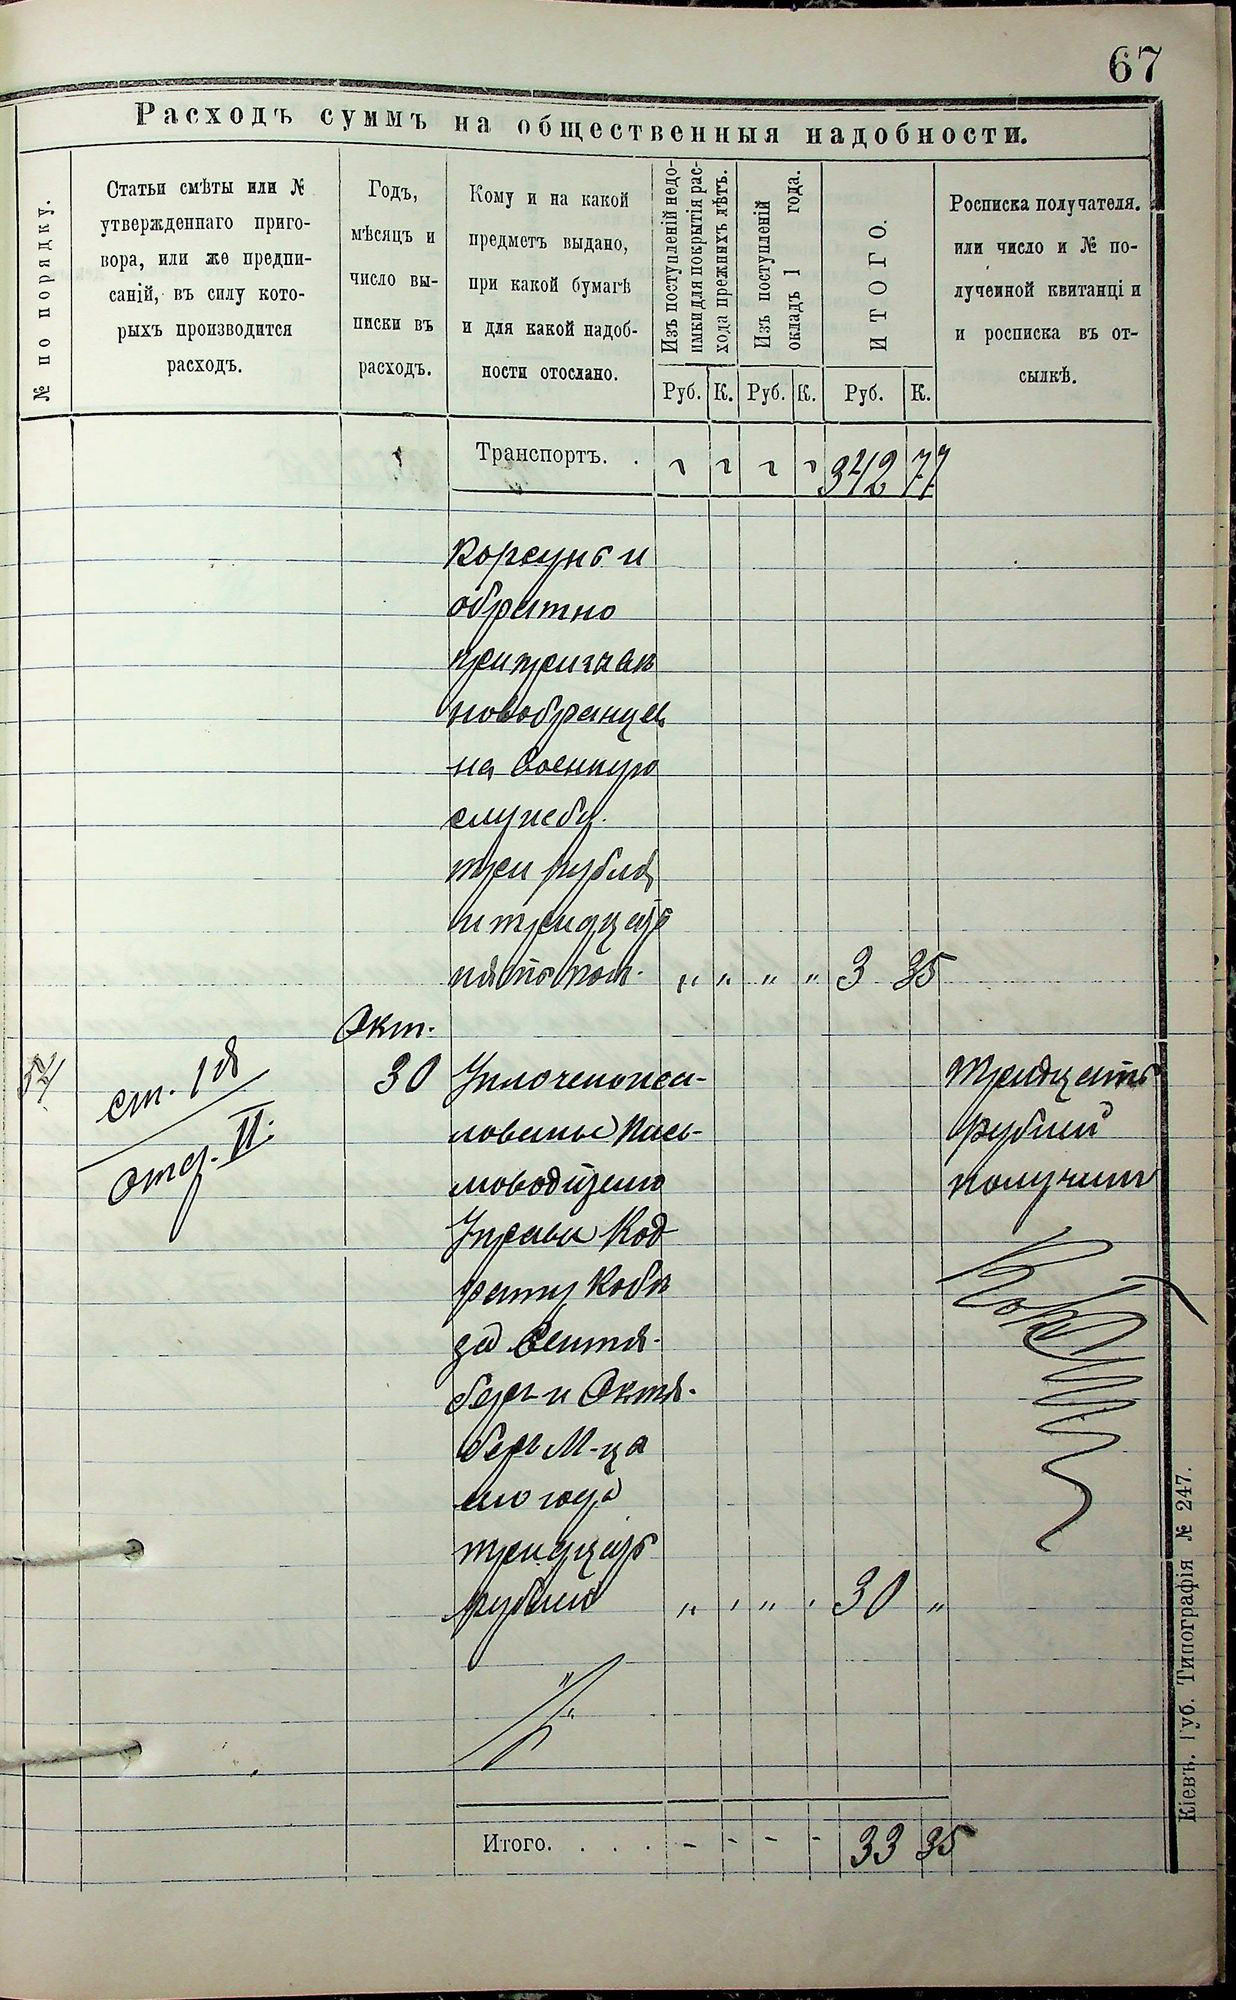 67
Расходъ суммъ на общественныя надобности.
№ по порядку.
Статьи смѣты или №
утвержденнаго приго-
вора, или же предпи-
саній, въ силу кото-
рыхъ производится
расходъ.
Годъ,
мѣсяцъ и
число вы-
писки въ
расходъ.
Кому и на какой
предметъ выдано,
при какой бумагѣ
и для какой надоб-
ности отослано.
Изъ поступленій недо-
имки для покрытія рас-
хода прежнихъ лѣтъ.
Изъ поступленій
окладъ 1 года.
ИТОГО.
Росписка получателя.
или число и № по-
лученной квитанці и
и росписка въ от-
сылкѣ.
Руб. К. Руб. К. Руб. К.
Транспортъ. . 342 77
Корсунь и
обратно
при
новобранцевъ
на военную
службу.
три рубля
и тридцать
пять коп. „ „ „ „ 3 35
Окт.
54 ст. 18 30 Уплочено
отд. II.
Письмо-
водителю
Управы Код
рату
за Сентя-
брь и Октя-
брь М-ца
сего года
тридцать
рублей „ „ „ „ 30 „
Тридцать
рублей
получилъ
Итого. . . . - - - - 33 35
Кіевъ. Губ. Типографія № 247.